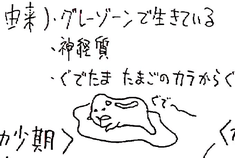 由来)・グレーゾーンで生きている
・神経質
・ぐでたま たまごのカラからぐ
ぐで〜
カ少期>